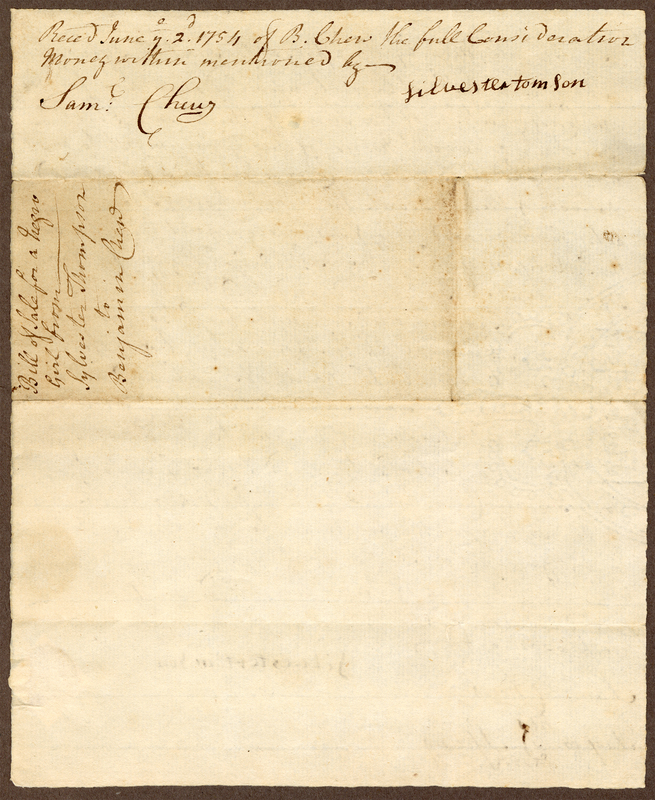 Rece'd June ye 2d 1754 of B. Chew the full Consideration
Money within mentioned by
Saml Chew
silvester tomson
Bill of Sale for a Negro
Girl from
Sylvester Thompson
to
Benjamin Chew